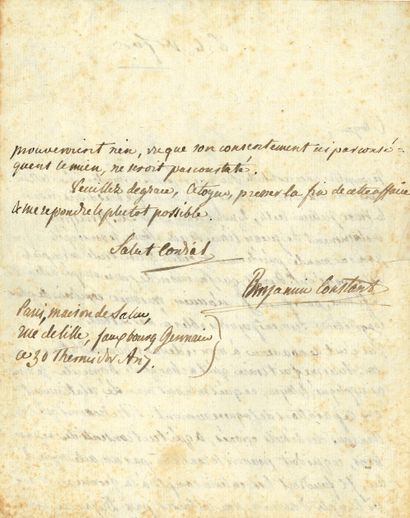 prouveroient rien, vu que son consentement ni par consé-
quent le mien, ne seroit pas constaté.
Veuillez de grace, Citoyen, presser la fin de cette affaire
& me repondre le plutot possible.
Salut Cordial
Benjamin Constant
Paris, maison de Salm,
rue de Lille, fauxbourg Germain
ce 30 Thermidor An 7.